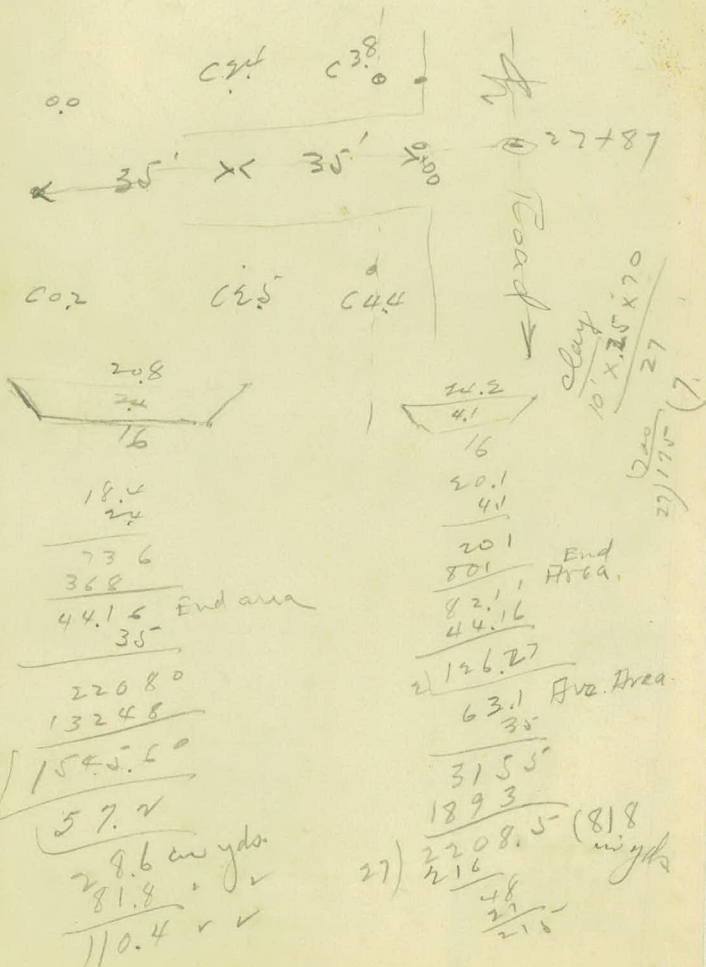 C 2.4 C 3.8
0.0
35' 35' 0+00 27+87
Road
C 0.2 C 2.5 C 4.4
Clay
10' x .25 x 70
27
27) 175 (7.
20.8
2.4
16
18.4
2.4
736
368
44.16 End area
35
22080
13248
1545.60
57.2
28.6 cu yds.
81.8 " "
110.4 " "
24.2
4.1
16
20.1
4.1
201
801
82.11 End Area.
44.16
2) 126.27
63.1 Ave. Area.
35
3155
1893
27) 2208.5 (818 cu yds
216
48
27
215